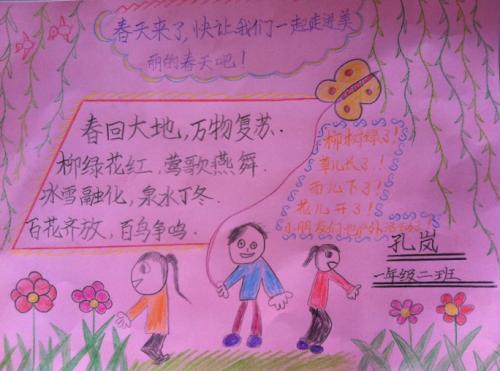 春天来了,快让我们一起走进美
丽的春天吧!
春回大地,万物复苏.
柳绿花红,莺歌燕舞.
冰雪融化,泉水丁冬.
百花齐放,百鸟争鸣.
柳树绿了!
草儿长了!
雨儿下了!
花儿开了!
小朋友们
孔岚
一年级二班